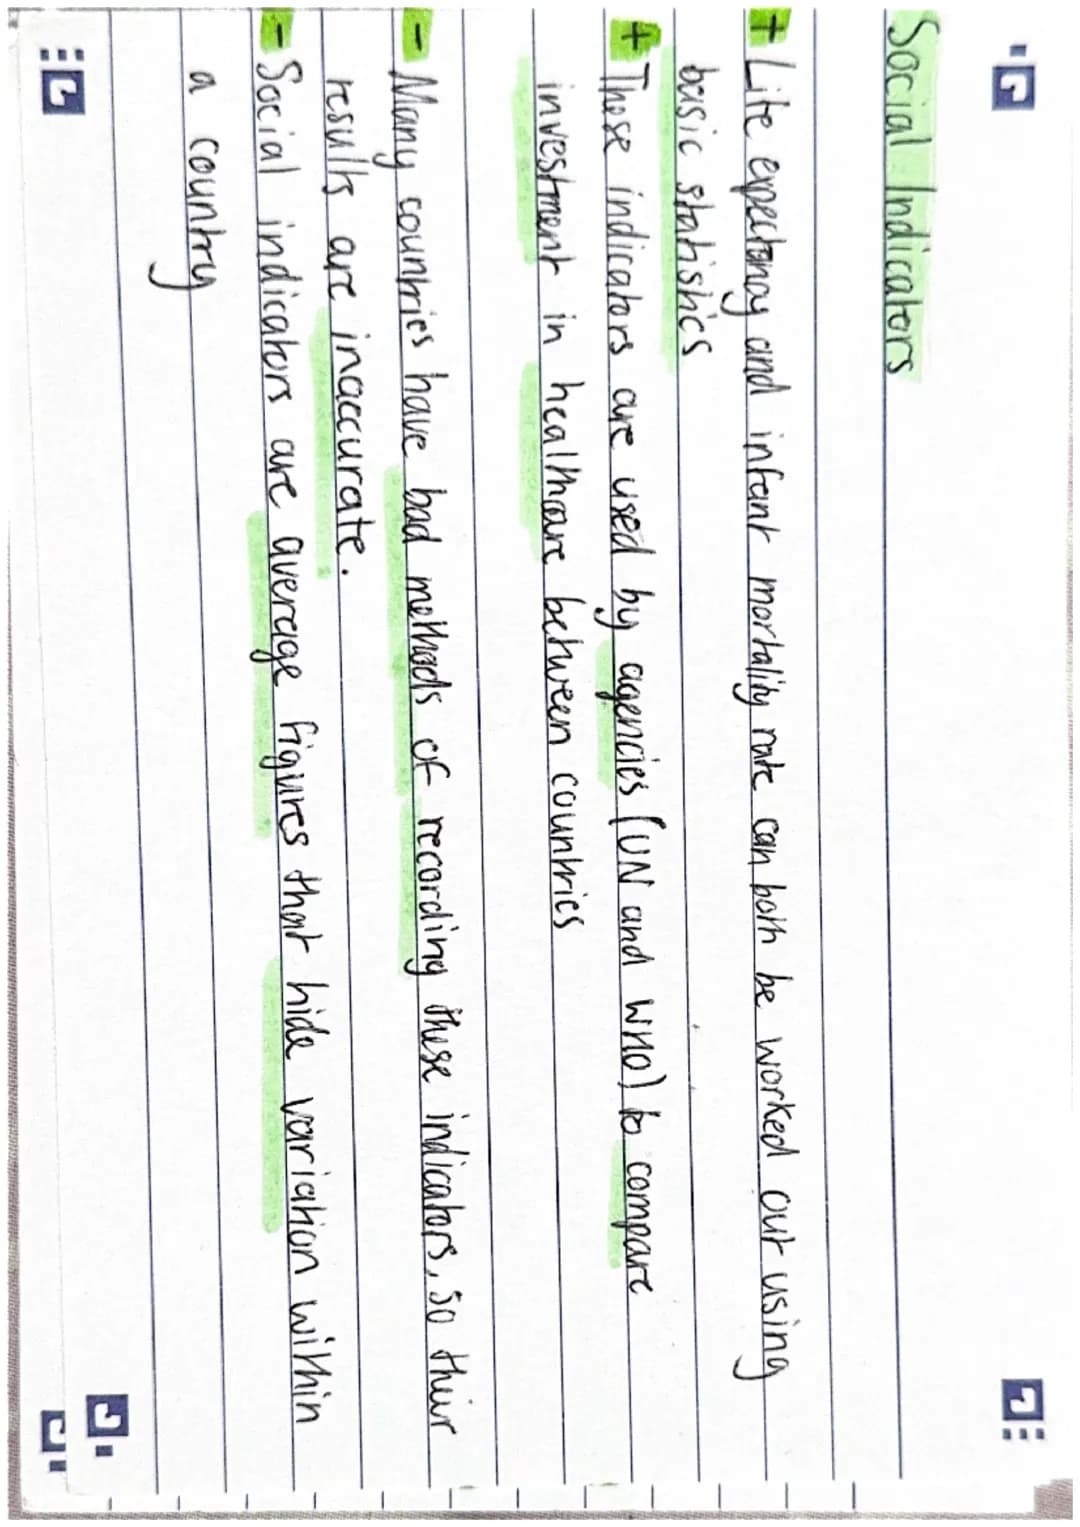 Social Indicators
+ Life expectancy and infant mortality rate can both be worked out using
basic statistics
+ These indicators are used by agencies (UN and WHO) to compare
investment in healthcare between countries
- Many countries have bad methods of recording these indicators, so their
results are inaccurate.
- Social indicators are average figures that hide variation within
a country